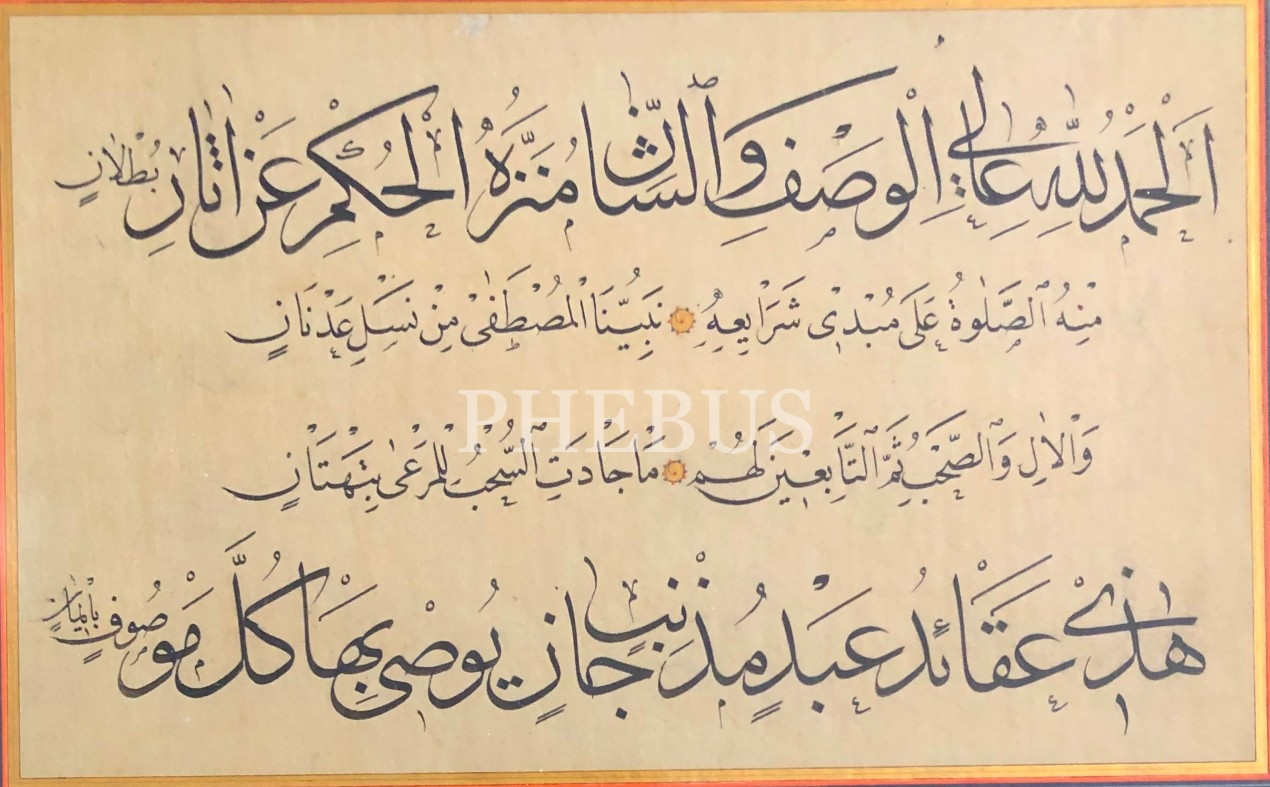 اَلْحَمْدُ لِلّٰهِ عَالِي الْوَصْفِ وَالشَّانِ مُنَزَّهُ الْحُكْمِ عَنْ اٰثَارِ بُطْلَانٍ
مِنْهُ الصَّلٰوةُ عَلَى مُبْدِي شَرَايِعِهِ نَبِيِّنَا الْمُصْطَفٰى مِنْ نَسْلِ عَدْنَانٍ
PHEBUS
وَالْاٰلِ وَالصَّحْبِ ثُمَّ التَّابِعِينَ لَهُمْ مَا جَادَتِ السُّحْبُ لِلْمَرْعٰى بِتَهْتَانٍ
هٰذِي عَقَائِدُ عَبْدٍ مُذْنِبٍ جَانٍ يُوصٰى بِهَا كُلُّ مَوْصُوفٍ بِاِيمَانٍ